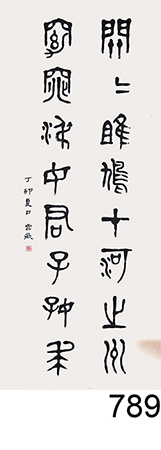 關〻雎鳩在河之州
窈窕淑女君子好求
丁卯夏日
789